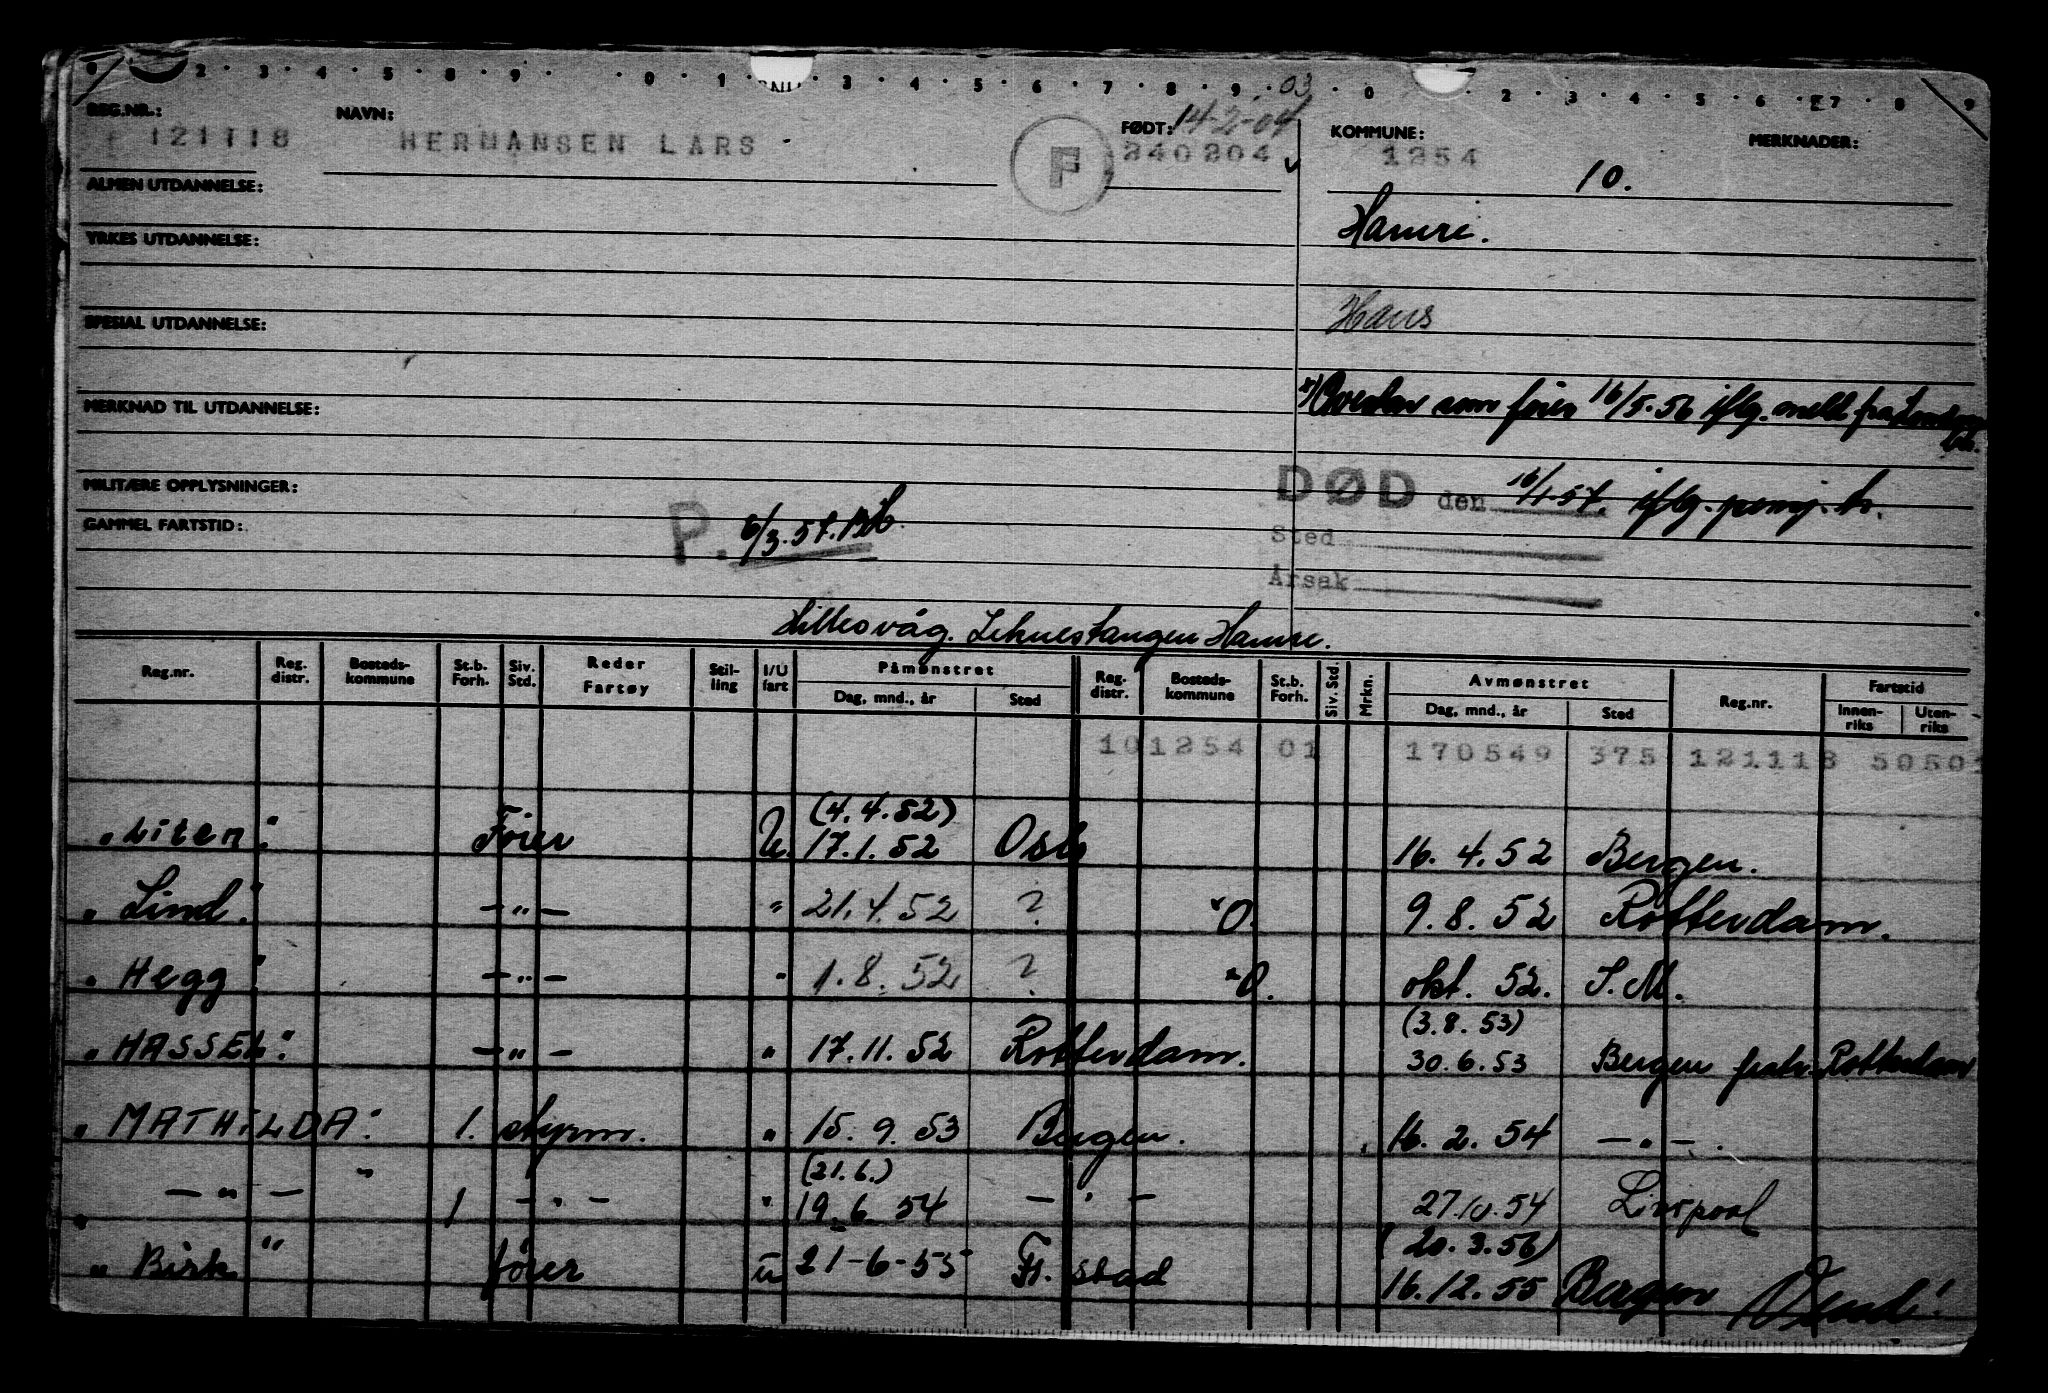 2 . 3 . 4 . 5 . 8 . 9 . . 0 . 1 . . 3 . 4 . 5 . 6 . 7 . 8 . 9 . . 0 . . 2 . 3 . 4 . 5 . 6 . 7 . 8 . 9
03
REG.NR.: NAVN: FØDT: 14-2-04 KOMMUNE: MERKNADER:
121118 HERMANSEN LARS F 240204 1254 10.
ALMEN UTDANNELSE:
Hamre.
YRKES UTDANNELSE:
Hans
SPESIAL UTDANNELSE:
x) som fører 16/5-56 iflg. meld. fra
MERKNAD TIL UTDANNELSE:
DØD den 16/1-57. iflg.
MILITÆRE OPPLYSNINGER:
GAMMEL FARTSTID: P. 6/3.57.
Sted
Årsak
Hillesvåg. Leknestangen Hamre.
Reg.nr. Reg. distr. Bosteds-kommune St.b. Forh. Siv. Std. Reder Fartøy Stil-ling I/U fart Påmønstret Dag, mnd., år Sted Reg. distr. Bosteds-kommune St.b. Forh. Siv. Std. Mrkn. Avmønstret Dag, mnd., år Sted Reg.nr. Fartstid Innen-riks Uten-riks
101254 01 170549 375 121118 50501
(4.4.52)
"Liten" Fører U. 17.1.52 Oslo 16.4.52 Bergen.
"Lind." -"- " 21.4.52 ? x O. 9.8.52 Rotterdam.
"Hegg" -"- " 1.8.52 ? x O. okt. 52. S.M.
(3.8.53)
"HASSEL" -"- " 17.11.52 Rotterdam. 30.6.53 Bergen fratr. Rotterdam
"MATHILDA" 1. styrm. " 15.9.53 Bergen. 16.2.54 -"-.
(21.6.)
-"- " 1 -"- " 19.6.54 -"- 27.10.54 Liverpool
(20.3.56)
"Birk" fører u 21-6-55 Fr.stad 16.12.55 Bergen Vend!